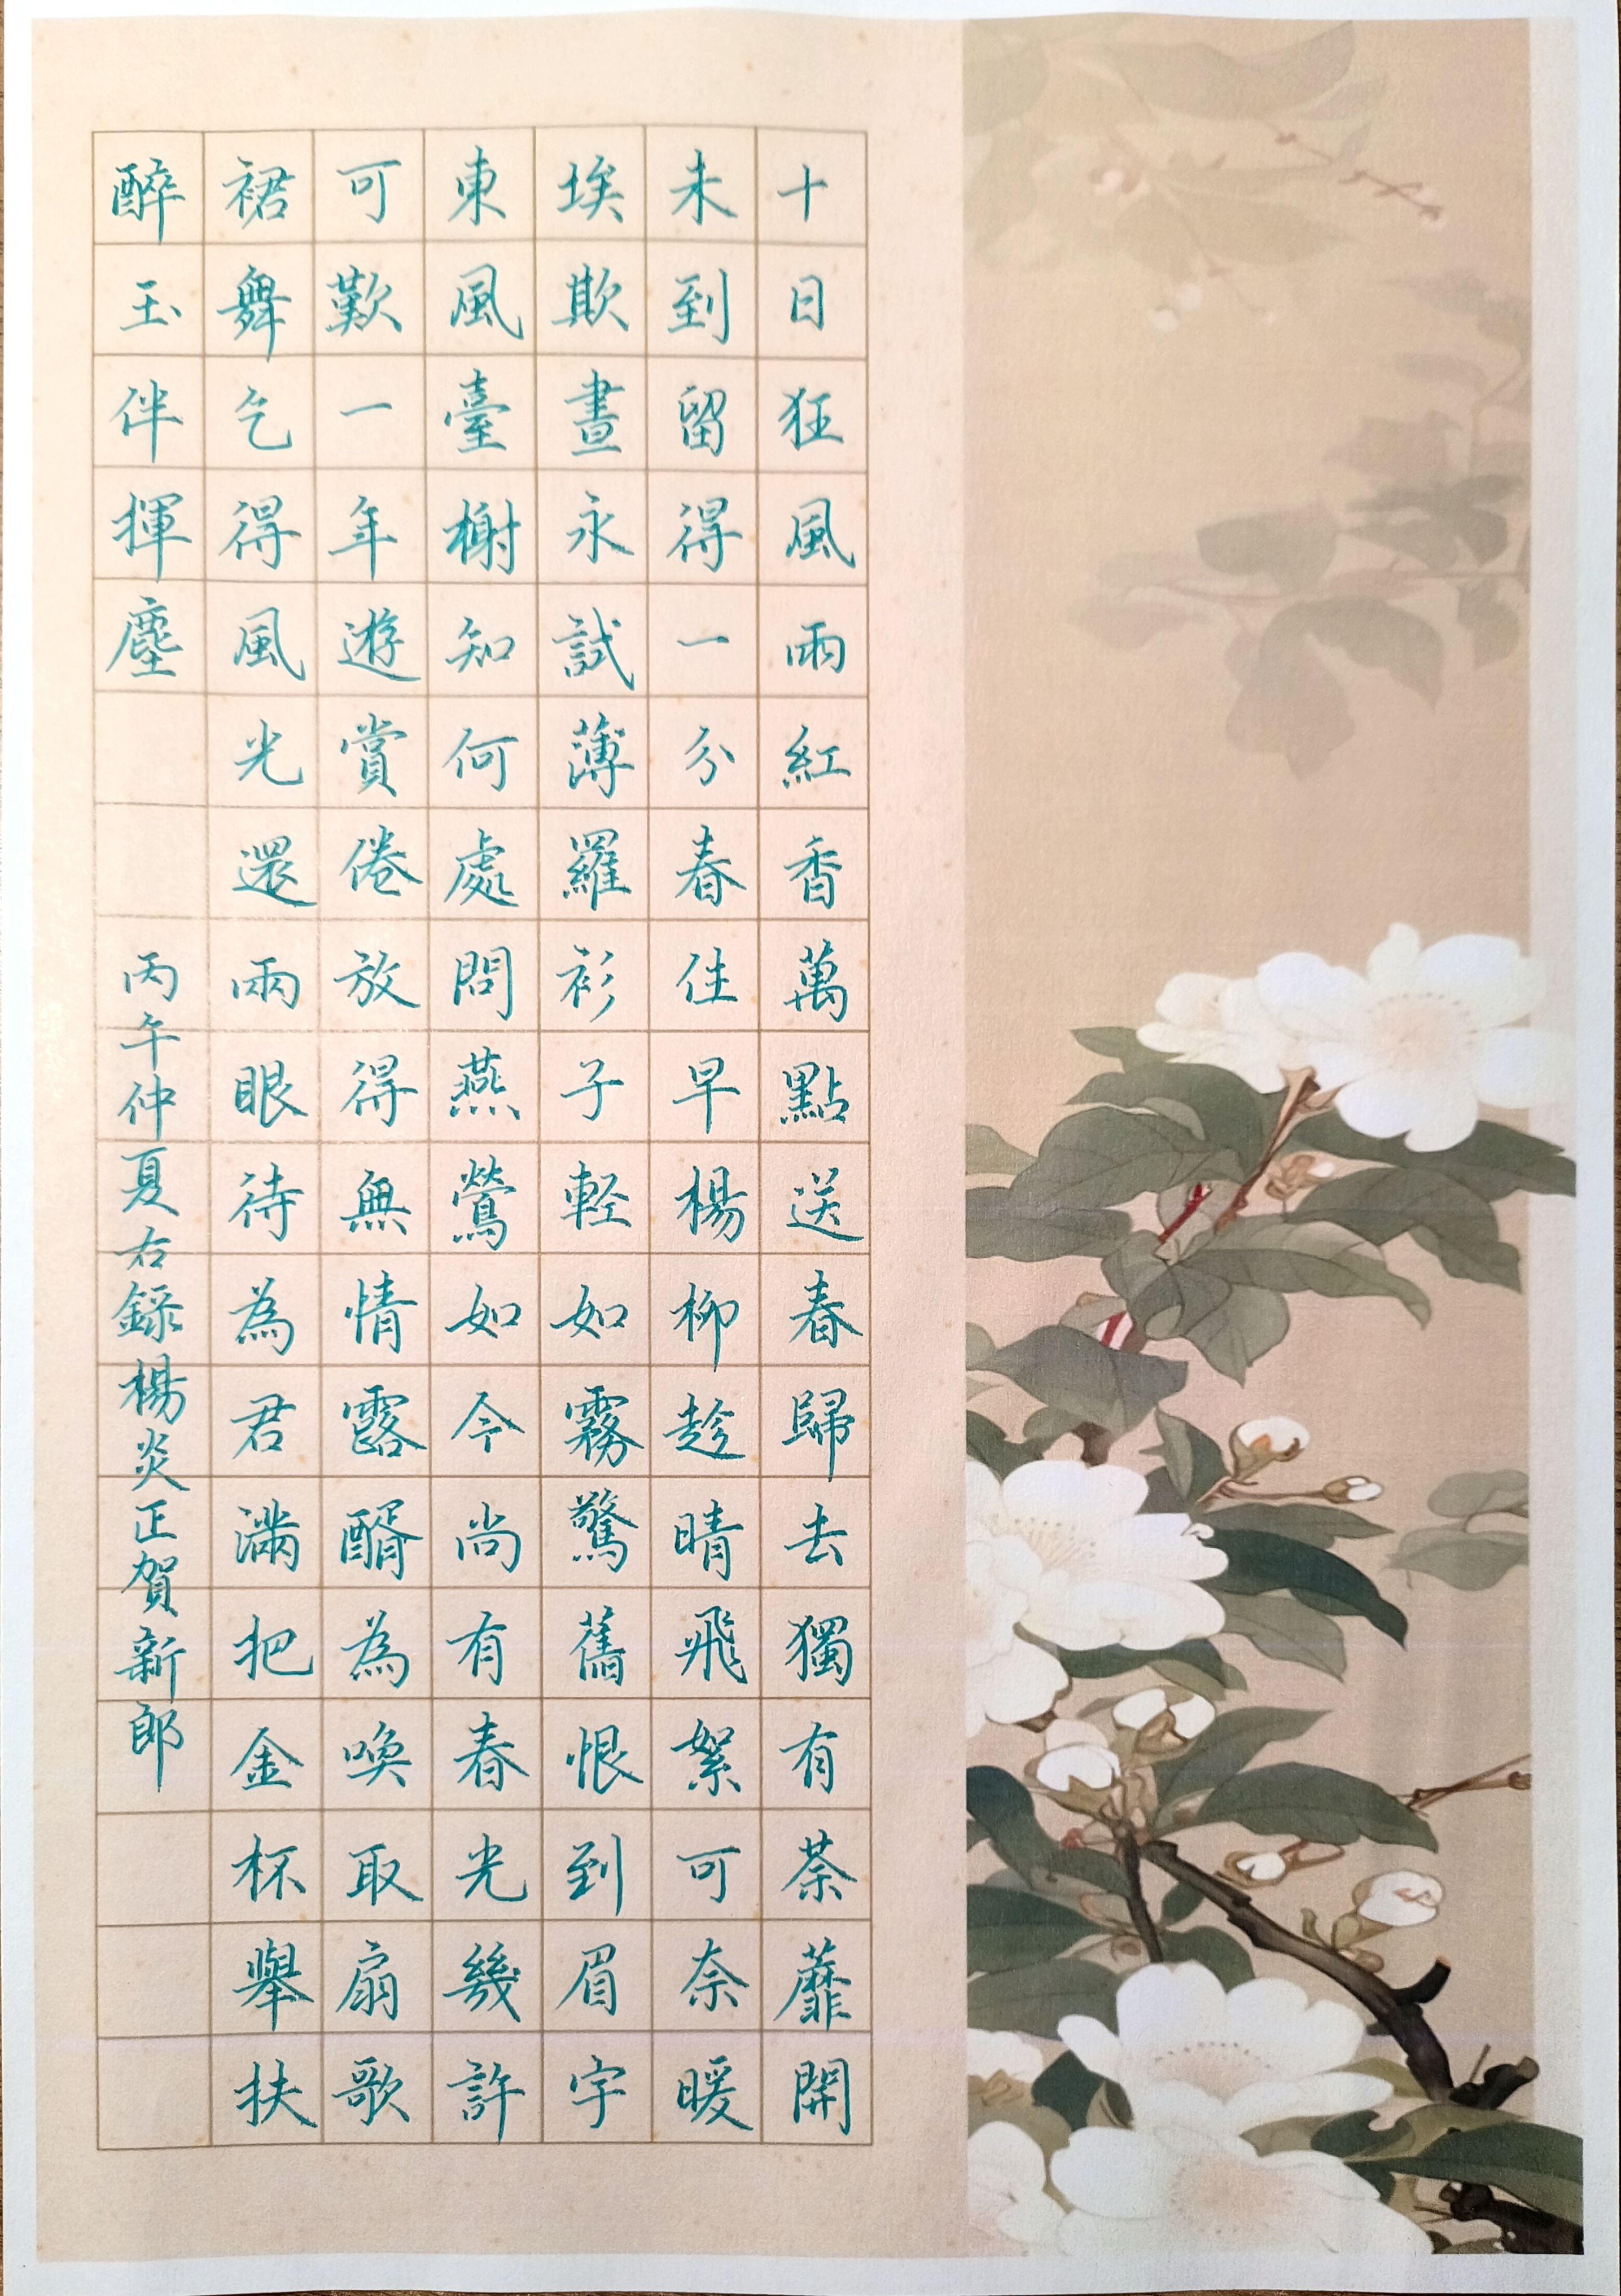 十日狂風雨紅香萬點送春歸去獨有荼蘼開
未到留得一分春住早楊柳趁晴飛絮可奈暖
埃欺晝永試薄羅衫子輕如霧驚舊恨到眉宇
東風臺榭知何處問燕鶯如今尚有春光幾許
可歎一年遊賞倦放得無情露醑為喚取扇歌
裙舞乞得風光還兩眼待為君滿把金杯舉扶
醉玉伴揮塵
丙午仲夏右錄楊炎正賀新郎